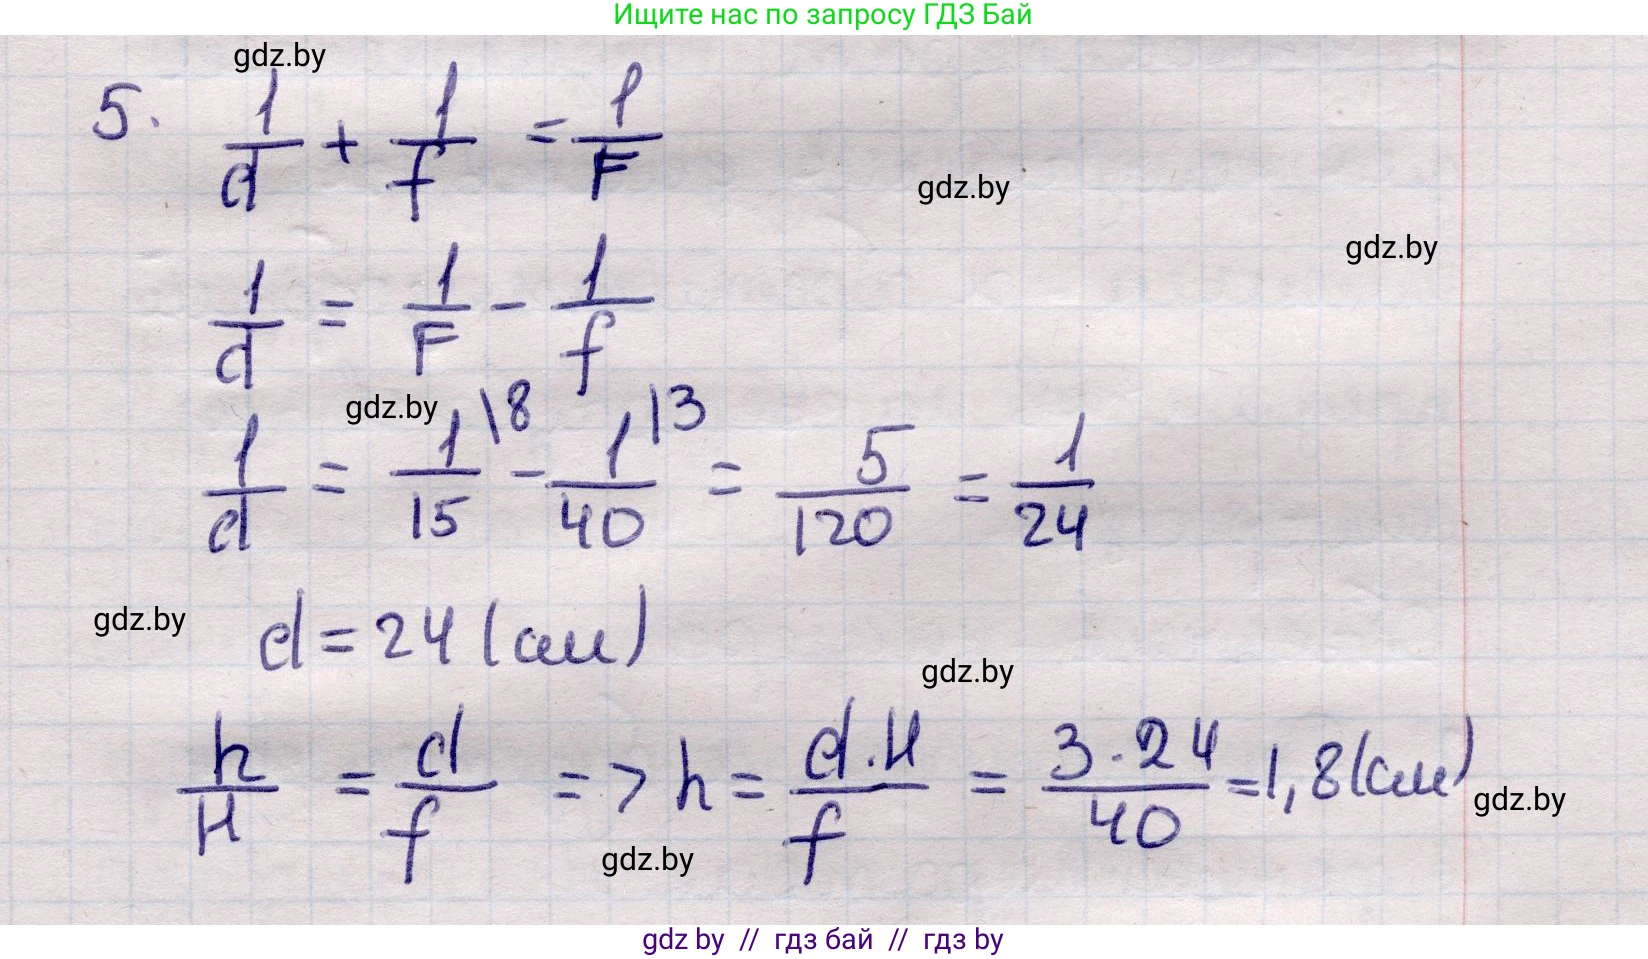 Ищите нас по запросу ГДЗ Бай
gdz.by
5. 1/d + 1/f = 1/F
gdz.by
gdz.by
1/d = 1/F - 1/f
gdz.by
1/d = 1/15 \8 - 1/40 |3 = 5/120 = 1/24
gdz.by
d = 24 (см)
gdz.by
h/H = d/f => h = d·H/f = 3·24/40 = 1,8 (см)
gdz.by
gdz.by
gdz by // гдз бай // гдз by